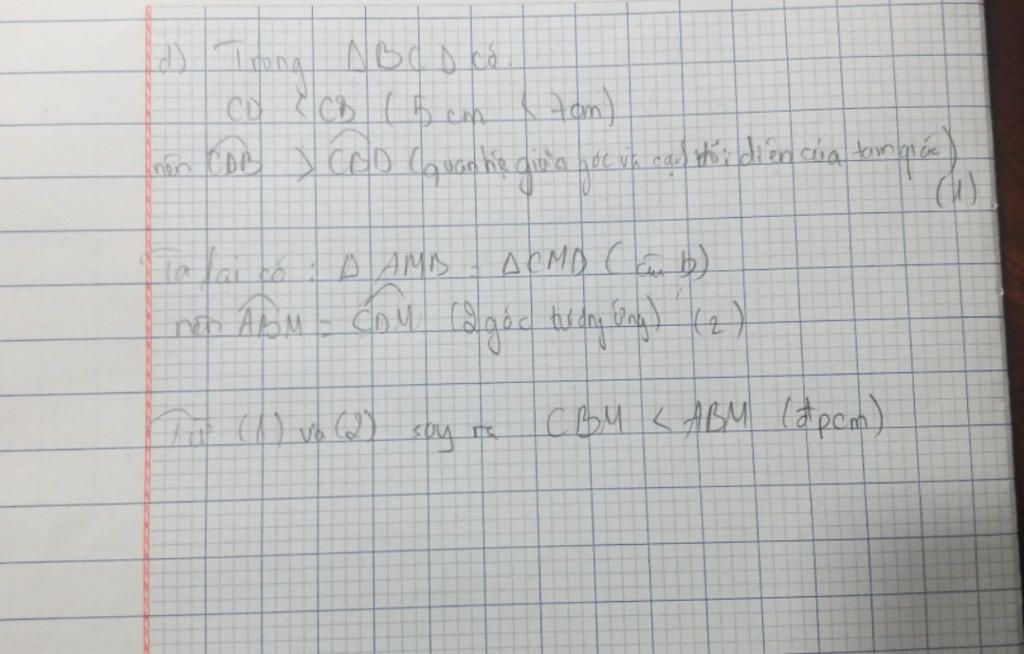 d) Trong Δ BCD có.
CD < CB (5 cm < 7cm)
nên CDB > CBD (quan hệ giữa góc và cạnh đối diện của tam giác)
(1)
Ta lại có: Δ AMB = Δ CMD (câu b)
nên ABM = CDM (2 góc tương ứng) (2)
Từ (1) và (2) suy ra CBM < ABM (đpcm)